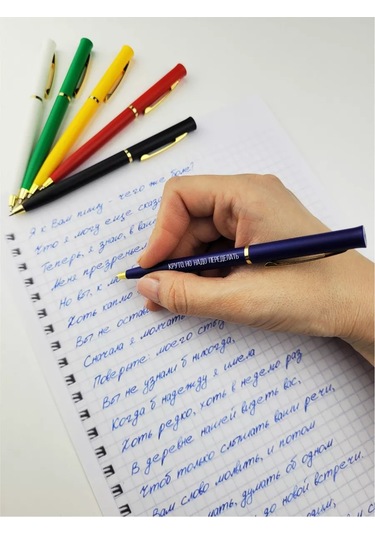 Я к Вам пишу - чего же боле?
Что я могу еще сказ
Теперь, я знаю, в ваш
Меня презрением
Но вы, к мо
Хоть каплю
Вы не оставите
Сначала я молчать
Поверьте: моего стыд
Вы не узнали б никогда,
Когда б надежду я имела
Хоть редко, хоть в неделю раз
В деревне нашей видеть вас,
Чтоб только слышать ваши речи,
Вам слово молвить, и потом
думать, думать об одном
до новой встречи.
КРУТО, НО НАДО ПЕРЕДЕЛАТЬ